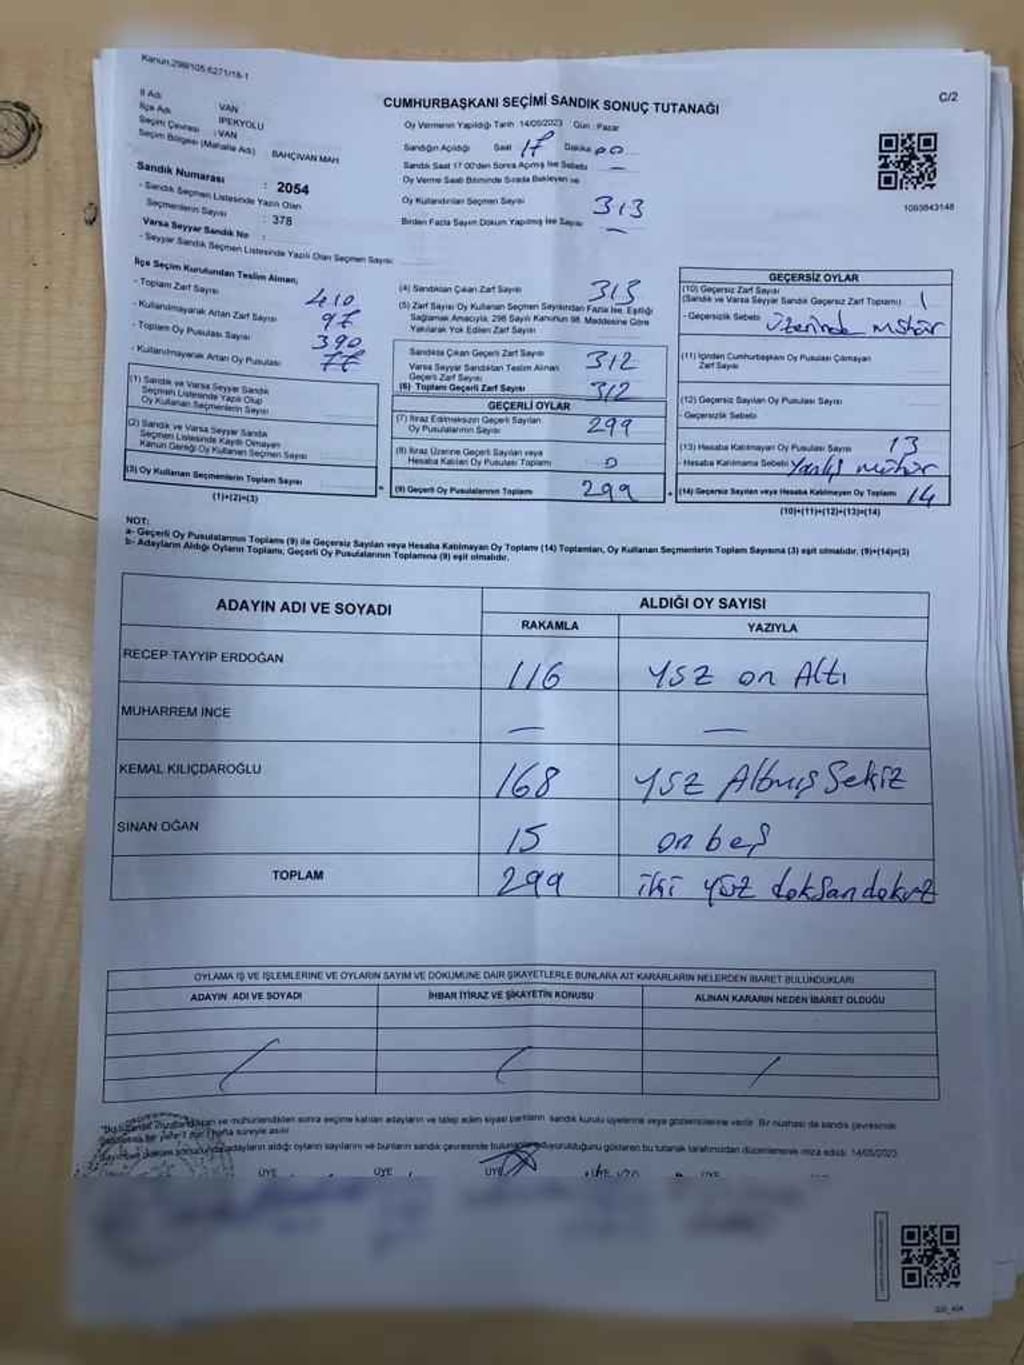 Kanun:298/105,6271/18-1
C/2
CUMHURBAŞKANI SEÇİMİ SANDIK SONUÇ TUTANAĞI
İl Adı : VAN
İlçe Adı : İPEKYOLU
Seçim Çevresi : VAN
Seçim Bölgesi (Mahalle Adı) : BAHÇIVAN MAH
Sandık Numarası : 2054
- Sandık Seçmen Listesinde Yazılı Olan
Seçmenlerin Sayısı : 378
Varsa Seyyar Sandık No :
- Seyyar Sandık Seçmen Listesinde Yazılı Olan Seçmen Sayısı
Oy Vermenin Yapıldığı Tarih 14/05/2023 Gün : Pazar
Sandığın Açıldığı Saat 17 Dakika 00
Sandık Saat 17.00'den Sonra Açılmış İse Sebebi —
Oy Verme Saati Bitiminde Sırada Bekleyen ve
Oy Kullandırılan Seçmen Sayısı 313
Birden Fazla Sayım Döküm Yapılmış İse Sayısı —
1093843148
İlçe Seçim Kurulundan Teslim Alınan;
- Toplam Zarf Sayısı 410
- Kullanılmayarak Artan Zarf Sayısı 97
- Toplam Oy Pusulası Sayısı 390
- Kullanılmayarak Artan Oy Pusulası 77
(1) Sandık ve Varsa Seyyar Sandık
Seçmen Listesinde Yazılı Olup
Oy Kullanan Seçmenlerin Sayısı
(2) Sandık ve Varsa Seyyar Sandık
Seçmen Listesinde Kayıtlı Olmayan
Kanun Gereği Oy Kullanan Seçmen Sayısı
(3) Oy Kullanan Seçmenlerin Toplam Sayısı
(1)+(2)=(3)
(4) Sandıktan Çıkan Zarf Sayısı 313
(5) Zarf Sayısı Oy Kullanan Seçmen Sayısından Fazla İse, Eşitliği
Sağlamak Amacıyla, 298 Sayılı Kanunun 98. Maddesine Göre
Yakılarak Yok Edilen Zarf Sayısı
Sandıkta Çıkan Geçerli Zarf Sayısı 312
Varsa Seyyar Sandıktan Teslim Alınan
Geçerli Zarf Sayısı
(6) Toplam Geçerli Zarf Sayısı 312
GEÇERLİ OYLAR
(7) İtiraz Edilmeksizin Geçerli Sayılan
Oy Pusulalarının Sayısı 299
(8) İtiraz Üzerine Geçerli Sayılan veya
Hesaba Katılan Oy Pusulası Toplamı 0
(9) Geçerli Oy Pusulalarının Toplamı 299
GEÇERSİZ OYLAR
(10) Geçersiz Zarf Sayısı
(Sandık ve Varsa Seyyar Sandık Geçersiz Zarf Toplamı) 1
- Geçersizlik Sebebi Üzerinde mühür
(11) İçinden Cumhurbaşkanı Oy Pusulası Çıkmayan
Zarf Sayısı
(12) Geçersiz Sayılan Oy Pusulası Sayısı
- Geçersizlik Sebebi
(13) Hesaba Katılmayan Oy Pusulası Sayısı 13
- Hesaba Katılmama Sebebi Yanlış mühür
(14) Geçersiz Sayılan veya Hesaba Katılmayan Oy Toplamı 14
(10)+(11)+(12)+(13)=(14)
NOT:
a- Geçerli Oy Pusulasının Toplamı (9) ile Geçersiz Sayılan veya Hesaba Katılmayan Oy Toplamı (14) Toplamları, Oy Kullanan Seçmenlerin Toplam Sayısına (3) eşit olmalıdır. (9)+(14)=(3)
b- Adayların Aldığı Oyların Toplamı, Geçerli Oy Pusulalarının Toplamına (9) eşit olmalıdır.
ADAYIN ADI VE SOYADI ALDIĞI OY SAYISI
RAKAMLA YAZIYLA
RECEP TAYYİP ERDOĞAN 116 yüz on Altı
MUHARREM İNCE — —
KEMAL KILIÇDAROĞLU 168 yüz Altmış Sekiz
SİNAN OĞAN 15 on beş
TOPLAM 299 iki yüz doksan dokuz
OYLAMA İŞ VE İŞLEMLERİNE VE OYLARIN SAYIM VE DÖKÜMÜNE DAİR ŞİKAYETLERLE BUNLARA AİT KARARLARIN NELERDEN İBARET BULUNDUKLARI
ADAYIN ADI VE SOYADI İHBAR İTİRAZ VE ŞİKAYETİN KONUSU ALINAN KARARIN NEDEN İBARET OLDUĞU
ve mühürlendikten sonra seçime katılan adayların ve talep eden siyasi partilerin sandık kurulu üyelerine veya gözlemcilerine verilir. Bir nüshası da sandık çevresinde
hafta süreyle asılır
adayların aldığı oyların sayılarını ve bunların sandık çevresinde duyurulduğunu gösteren bu tutanak tarafımızdan düzenlenerek imza edildi. 14/05/2023
ÜYE ÜYE ÜYE ÜYE